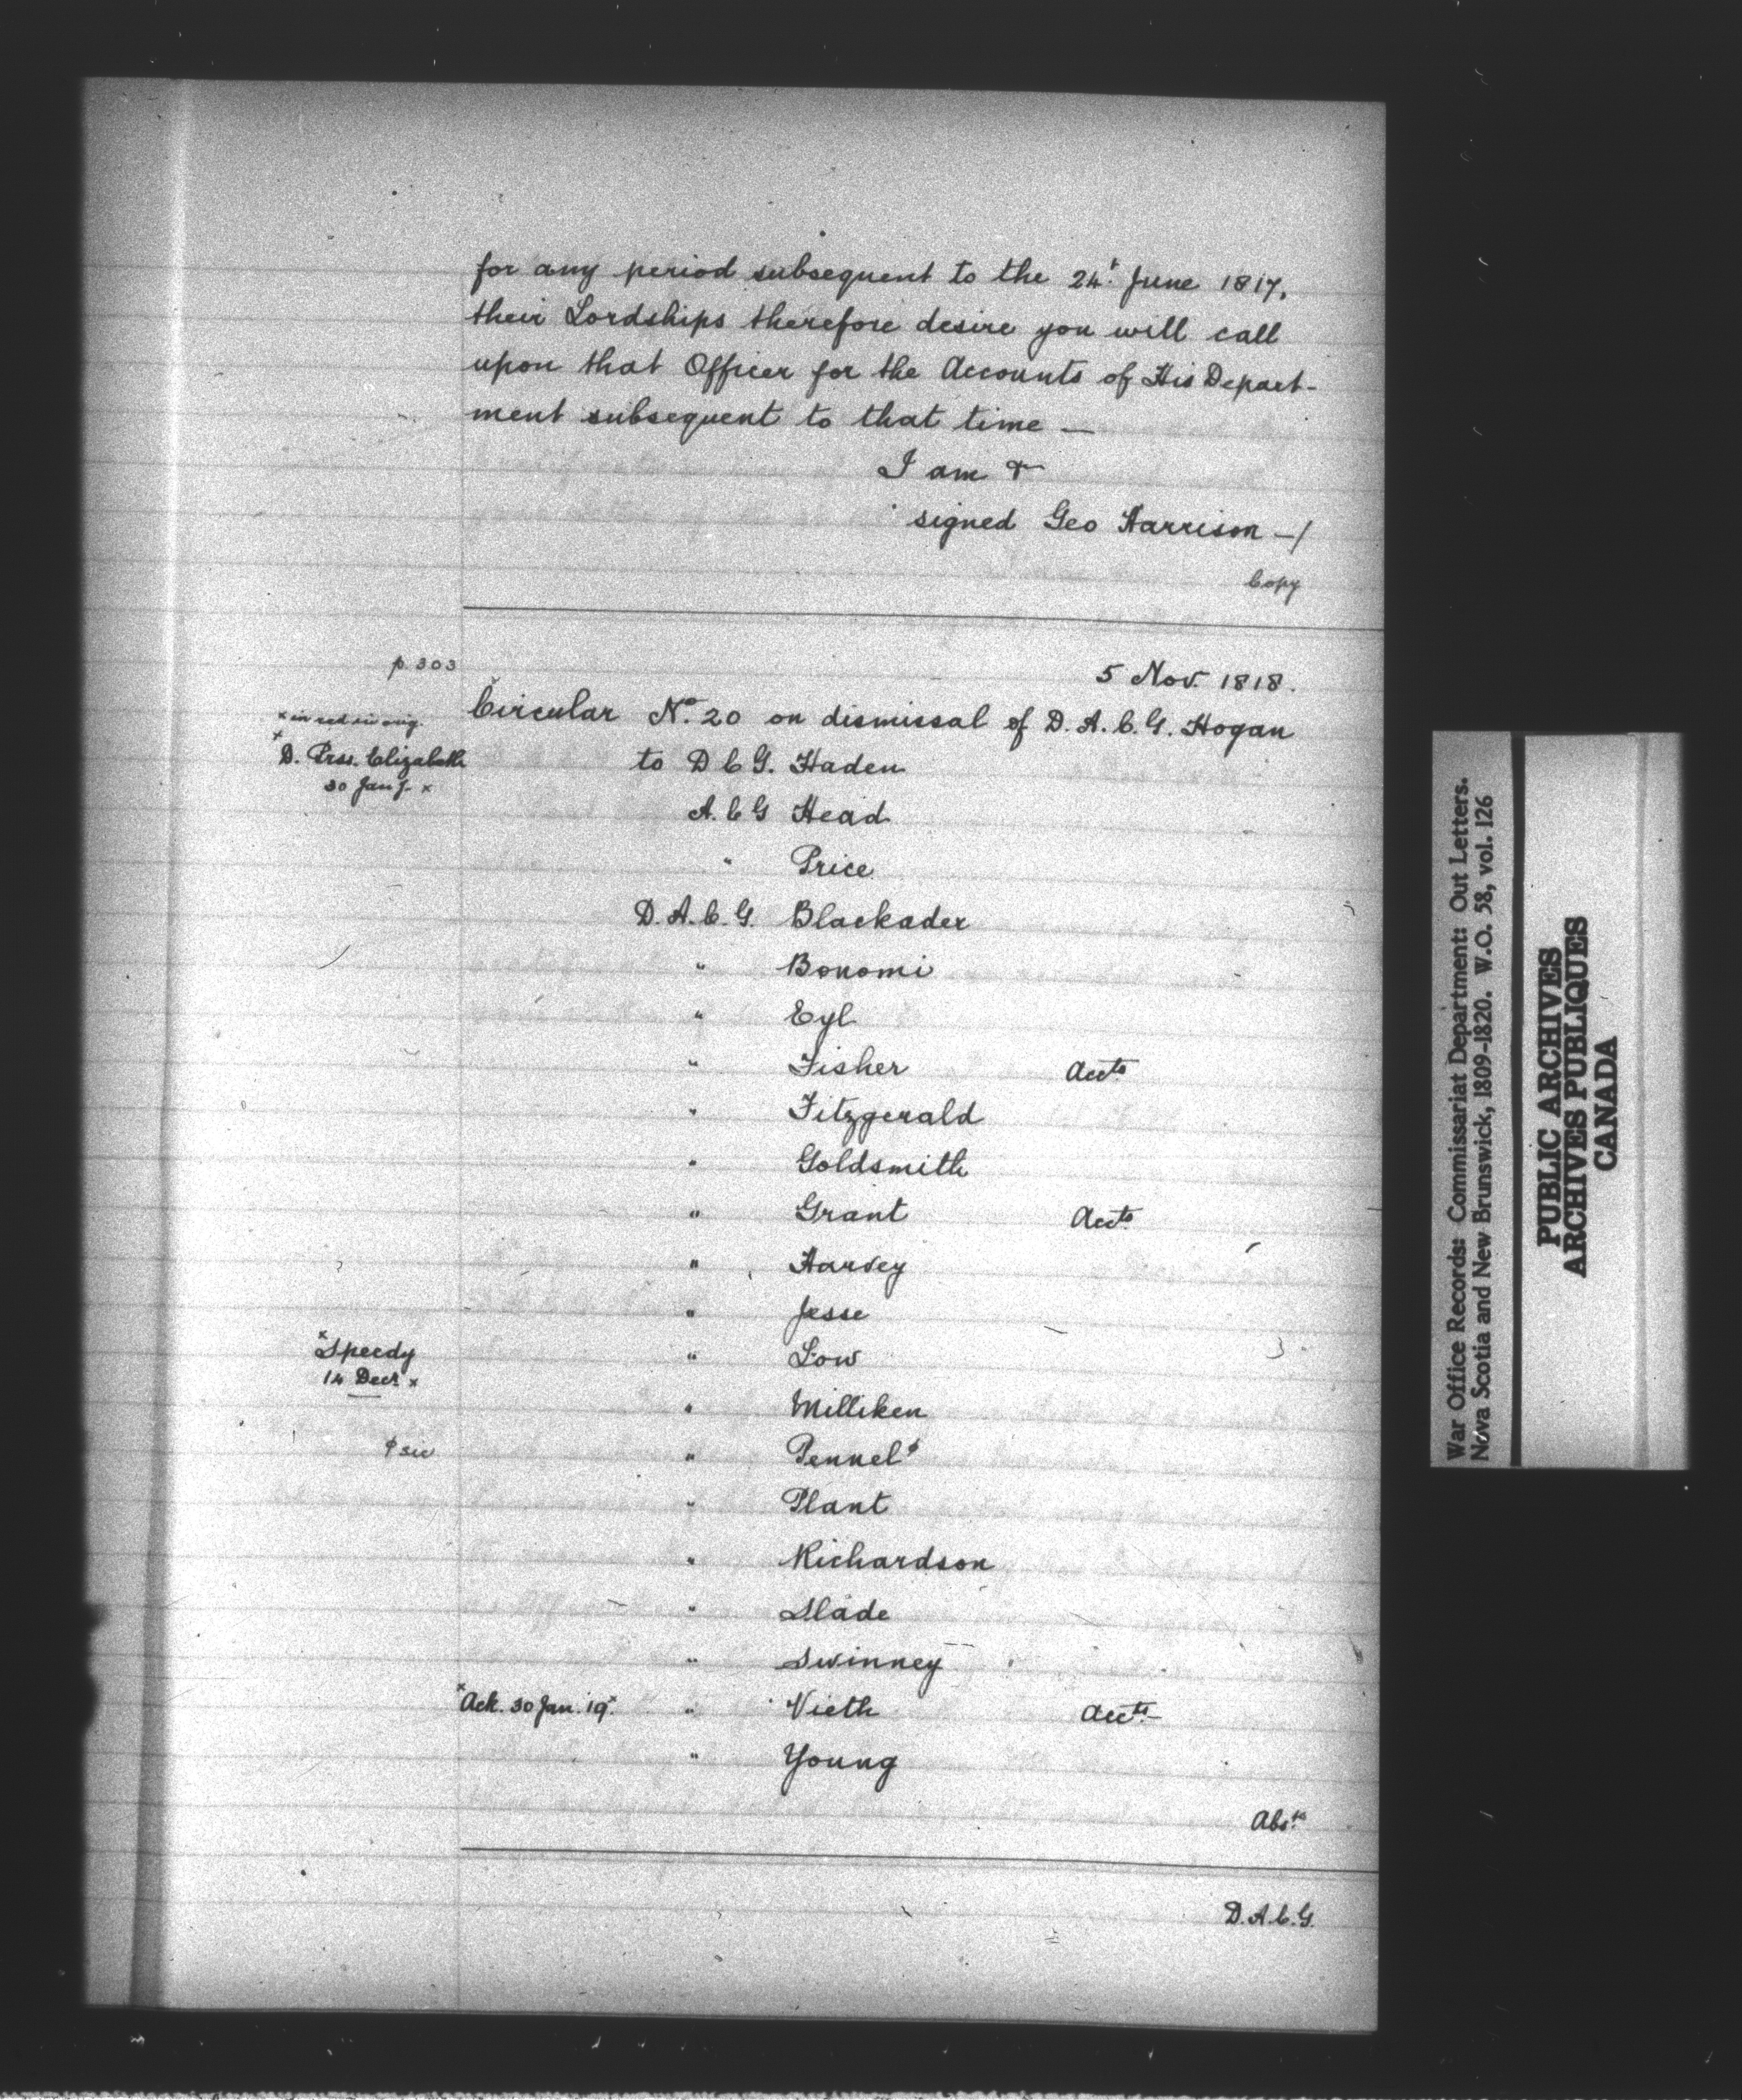 for any period subsequent to the 24t. June 1817,
their Lordships therefore desire you will call
upon that Officer for the Accounts of His Depart-
ment subsequent to that time —
I am &
signed Geo Harrison —/
Copy
p. 303
5 Nov. 1818.
x in red in orig.
Circular No. 20 on dismissal of D. A. C. G. Hogan
x D. Prss. Elizabeth
30 Jany. x
to D C G. Haden
A. C G Head
" Price
D. A. C. G. Blackader
" Bonomi
" Eyl
" Fisher Accts
" Fitzgerald
" Goldsmith
" Grant Accts
" Harvey
" Jesse
x Speedy
14 Decr x
" Low
" Milliken
φ sic
" Pennel φ
" Plant
" Richardson
" Slade
" Swinney
x Ack. 30 Jan. '19 x " Vieth Accts. —
" Young
Abs.ts
D.A.C.G.
War Office Records: Commissariat Department: Out Letters.
Nova Scotia and New Brunswick, 1809-1820. W.O. 58, vol. 126
PUBLIC ARCHIVES
ARCHIVES PUBLIQUES
CANADA